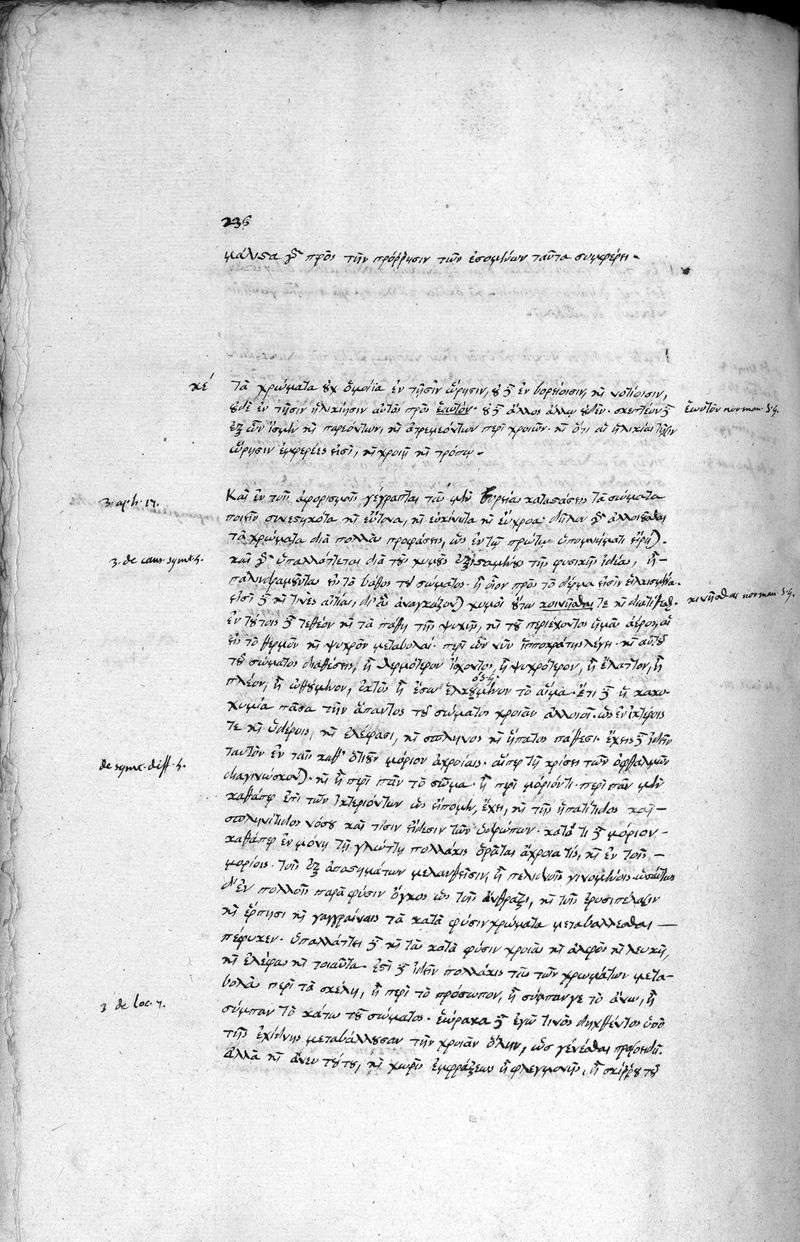 236
μάλιστα γὰρ πρὸς τὴν πρόρρησιν τῶν ἐσομένων ταῦτα συμφέρει.
κέ
τὰ χρώματα οὐχ ὅμοια ἐν τῇσιν ὥρησιν, οὐδὲ ἐν βορείοισιν, καὶ νοτίοισιν,
οὐδὲ ἐν τῇσιν ἡλικίησιν αὐτὸς πρὸς ἑαυτόν. οὐδὲ ἄλλος ἄλλῳ οὐδέν. σκεπτέον δὲ
ἐξ ὧν ἴσμεν καὶ παρεόντων, καὶ ἀτρεμεόντων περὶ χροιῶν. καὶ ὅτι αἱ ἡλικίαι τῇσιν
ὥρησιν ἐμφερέες εἰσὶ, καὶ χροιῇ καὶ τρόπῳ.
3. aph. 17.
Κἀν τοῖς ἀφορισμοῖς γέγραπται τὰς μὲν βορείας καταστάσεις τὰ σώματα
ποιεῖν συνεστηκότα καὶ εὔτονα, καὶ εὐκίνητα καὶ εὔχροα. δῆλον γὰρ ἀλλοιοῦσθαι
τὰ χρώματα διὰ πολλὰς προφάσεις, ὡς ἐν τῷ πρώτῳ ὑπομνήματι εἴρηται.
3. de caus. sympt.
καὶ γὰρ ὑπαλλάττεται διὰ τοὺς χυμοὺς ἐξισταμένους τῆς φυσικῆς ἰδέας, ἢ
παλινδρομοῦντας εἰς τὸ βάθος τοῦ σώματος. ἢ οἷον πρὸς τὸ δέρμα
εἰσὶ δὲ καὶ τινὲς αἰτίαι, δι' ἃς ἀναγκάζονται χυμοὶ οὕτω κινῆσθαι τε καὶ
ἐν τούτοις δὲ θετέον καὶ τὰ πάθη τῆς ψυχῆς, καὶ τοῦ περιέχοντος ἡμᾶς ἀέρος αἱ
εἰς τὸ θερμὸν καὶ ψυχρὸν μεταβολαὶ. περὶ ὧν νῦν ἱπποκράτης λέγει. καὶ αὐτοῦ
τοῦ σώματος διαθέσεις, ἢ θερμότερον ἴσχοντος, ἢ ψυχρότερον, ἢ ἔλαττον, ἢ
πλέον, ἢ ὠθούμενον, ἐκτὸς ἢ ἔσω ἑλκόμενον τὸ αἷμα. ἔτι δὲ ἡ κακο-
χυμία πᾶσα τὴν ἅπαντος τοῦ σώματος χροιὰν ἀλλοιοῖ. ὡς ἐν ἰκτέροις
τε καὶ ὑδέροις, καὶ ἐλέφασι, καὶ σπληνὸς καὶ ἥπατος πάθεσι. ἔχεις δὲ ἰδεῖν
ταὐτὸν ἐν ταῖς καθ' ὁτιοῦν μόριον ἀχροίαις. αἵπερ τῇ κρίσει τῶν ὀφθαλμῶν
de sympt. diff.
διαγινώσκονται. καὶ ἢ περὶ πᾶν τὸ σῶμα. ἢ περὶ μόριόν τι. περὶ πᾶν μὲν
καθάπερ ἐπὶ τῶν ἰκτεριώντων ὡς εἴπομεν, ἔχει, καὶ τῆς ἡπατίτιδος καὶ
σπληνίτιδος νόσου καὶ τισιν εἴδεσιν τῶν ὑδερώπων. κατά τι δὲ μόριον
καθάπερ ἐν μόνῃ τῇ γλώττῃ πολλάκις ὁρᾶται ἄχροιά τις, καὶ ἐν τοῖς
μορίοις. τοῖς ἐξ ἀποστημάτων μελανθεῖσιν, ἢ πελιδνοῖς γινομένοις ὡσαύτως
δ' ἐν πολλοῖς παρὰ φύσιν ὄγκοις ὡς τοῖς ἄνθραξι, καὶ τοῖς ἐρυσιπέλασιν
καὶ ἕρπησι καὶ γαγγραίναις τὰ κατὰ φύσιν χρώματα μεταβάλλεσθαι
πέφυκεν. ὑπαλλάττει δὲ καὶ τὰς κατὰ φύσιν χροιὰς καὶ ἀλφὸς καὶ λεύκη,
καὶ ἐλέφας καὶ τοιαῦτα. ἔστι δὲ ἰδεῖν πολλάκις τὰς τῶν χρωμάτων μετα-
βολὰς περὶ τὰ σκέλη, ἢ περὶ τὸ πρόσωπον, ἢ σύμπαν γε τὸ ἄνω, ἢ
3 de loc. 7.
σύμπαν τὸ κάτω τοῦ σώματος. ἑώρακα δὲ ἐγὼ τινὸς δηχθέντος ὑπὸ
τῆς ἐχίδνης μεταβάλλουσαν τὴν χροιὰν ὅλην, ὡς γενέσθαι πρασοειδῆ.
ἀλλὰ καὶ ἄνευ τούτου, καὶ χωρὶς ἐμφράξεως ἢ φλεγμονῆς, ἢ σκίρρου τοῦ